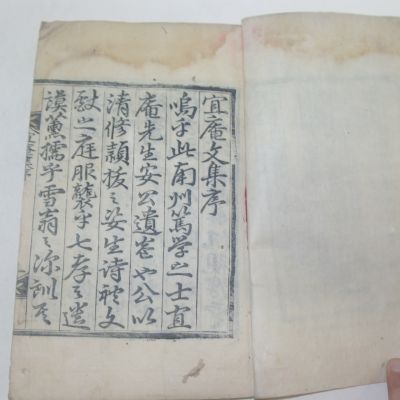 宜庵文集序
嗚乎此南州篤学之士宜
庵先生安公遺卷也公以
清修穎拔之姿生诗礼文
献之庭服襲乎七孝之遺
謨薰擩乎雪翁之深訓其